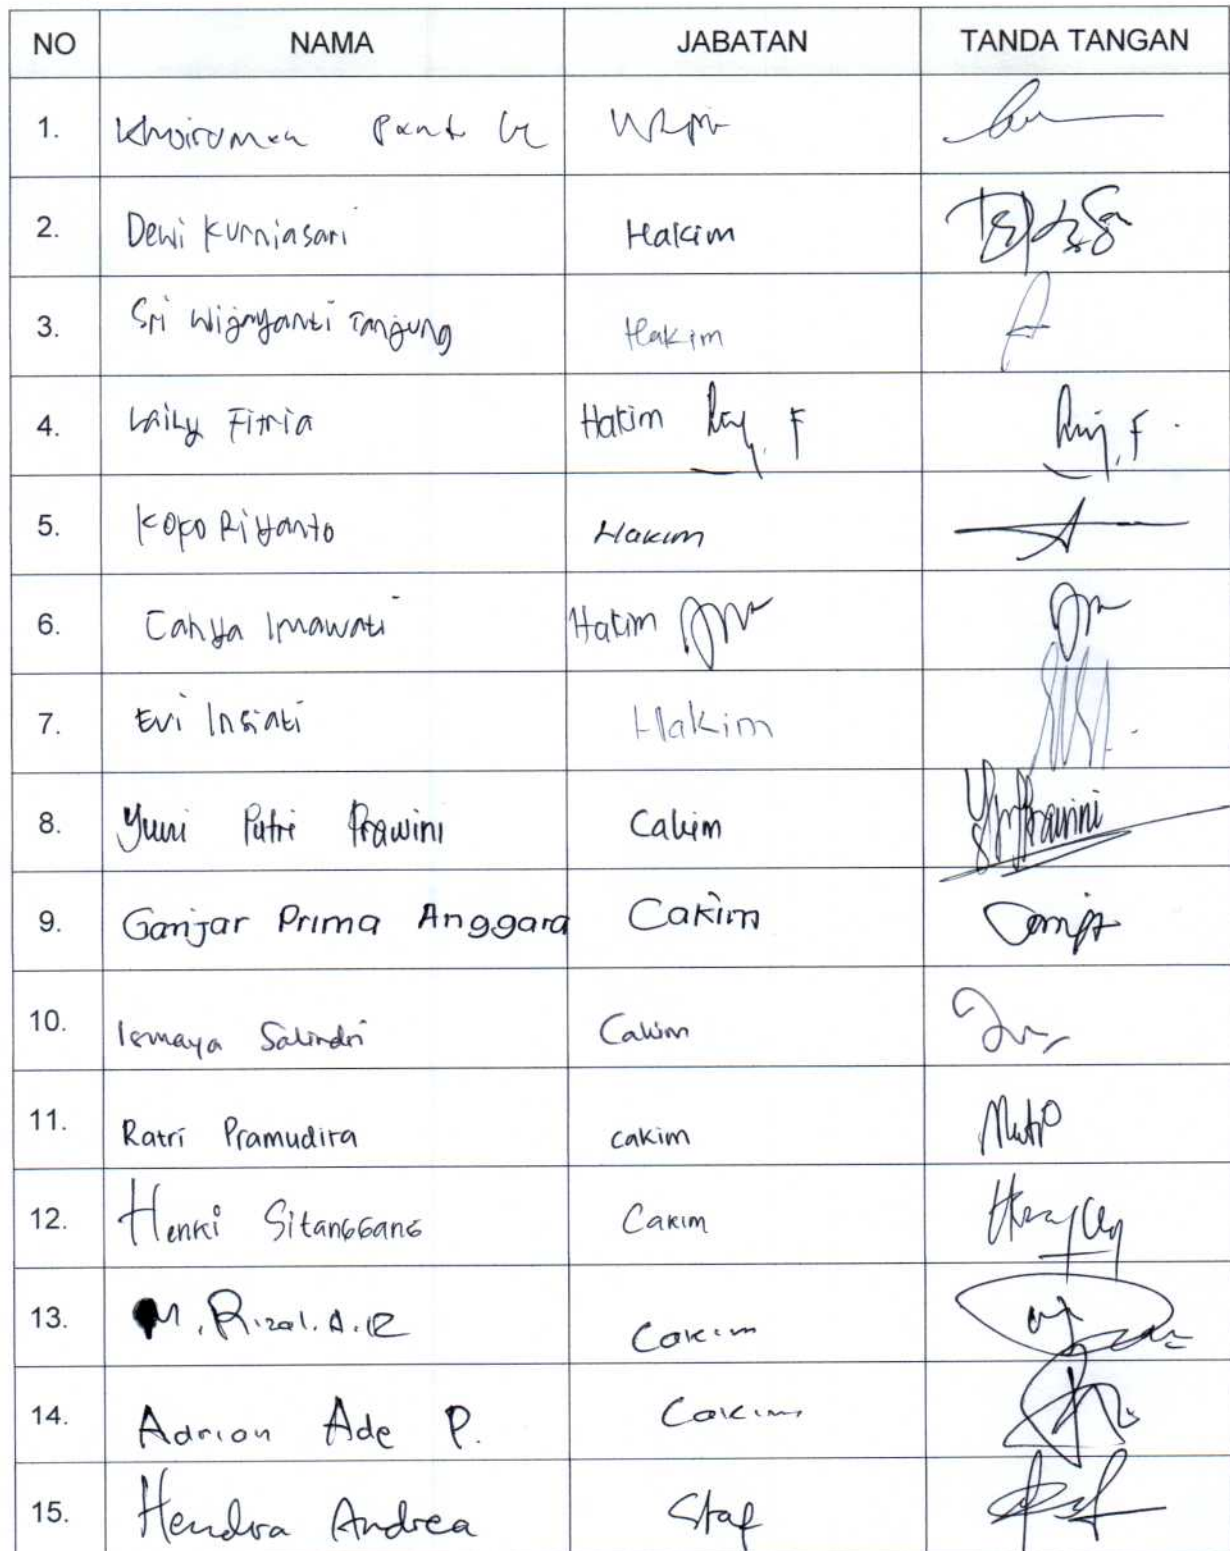 NO NAMA JABATAN TANDA TANGAN
1. Khoiruman
2. Dewi Kurniasari Hakim
3. Sri Wijayanti Tanjung Hakim
4. Laily Fitria Hakim
5. Koko Riyanto Hakim
6. Cahya Imawati Hakim
7. Evi Insiati Hakim
8. Yuni Putri Prawini Cakim
9. Ganjar Prima Anggara Cakim
10. Ismaya Salindri Cakim
11. Ratri Pramudita cakim
12. Henki Sitanggang Cakim
13. M. Rizal. A. R Cakim
14. Adrian Ade P. Cakim
15. Hendra Andrea Staf